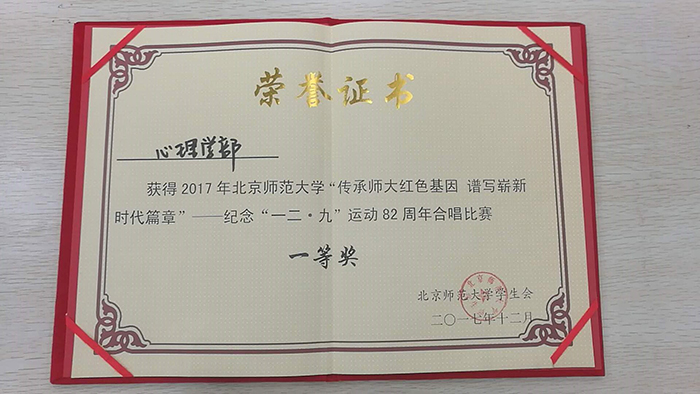 荣誉证书
心理学部
获得2017年北京师范大学“传承师大红色基因 谱写崭新
时代篇章”——纪念“一二·九”运动82周年合唱比赛
一等奖
北京师范大学学生会
二〇一七年十二月